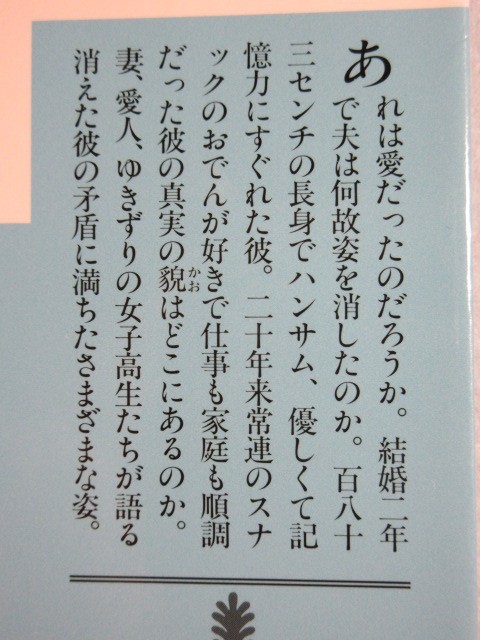 あれは愛だったのだろうか。結婚二年
で夫は何故姿を消したのか。百八十
三センチの長身でハンサム、優しくて記
憶力にすぐれた彼。二十年来常連のスナ
ックのおでんが好きで仕事も家庭も順調
だった彼の真実の貌かおはどこにあるのか。
妻、愛人、ゆきずりの女子高生たちが語る
消えた彼の矛盾に満ちたさまざまな姿。